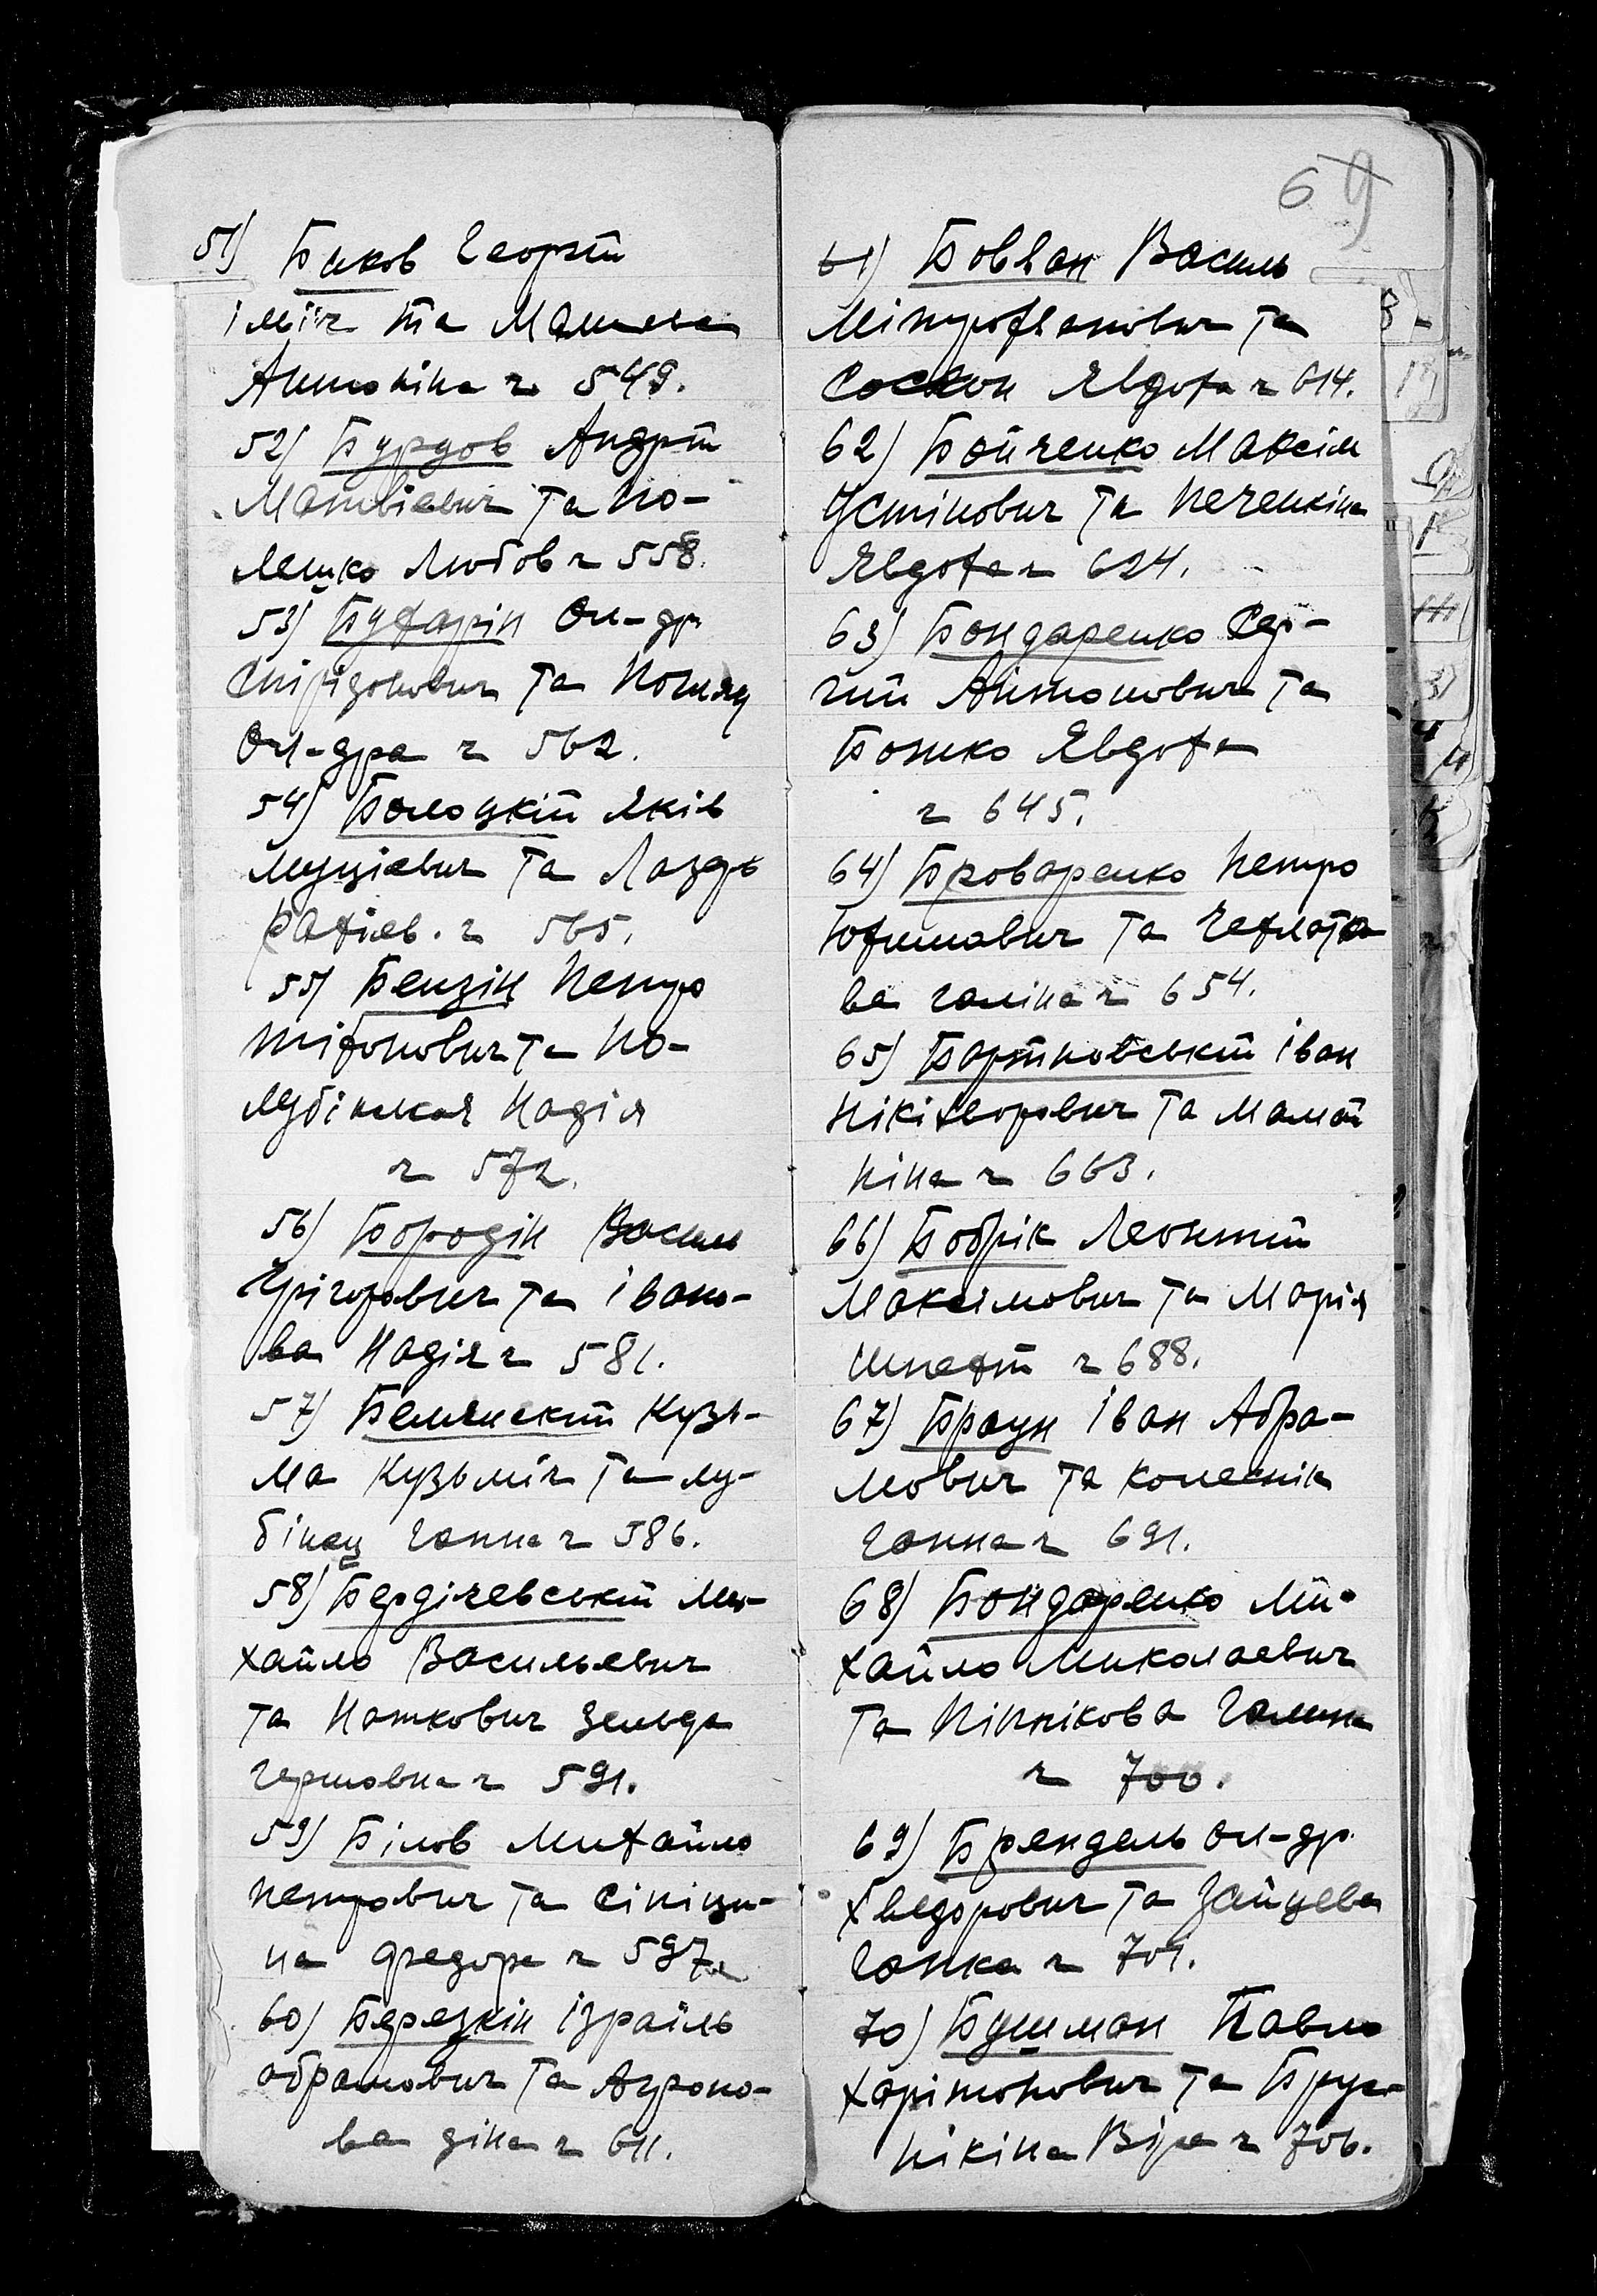 51) Биков Георгій
Ілліч та Машева
Антоніна ч 549.
52) Бурдов Андрій
Матвієвич та По-
лешко Любов ч 558.
53) Бухарін Ол-др
Спірідонович та
Ол-дра ч 562.
54) Болоцкій Яків
та
ч 565.
55) Бензін Петро
Тіхонович та По-
Надія
ч 572.
56) Бородін Василь
Григорович та Івано-
ва Надія ч 581.
57) Белянскій Кузь-
ма Кузьміч та Лу-
бінец Ганна ч 586.
58) Бердічевський Ми-
хайло Васильевич
та Наткович Зельда
Гершовна ч 591.
59) Білов Михайло
Петрович та Сініци-
на Федора ч 597.
60) Березкін Ізраїль
Абрамович та Агроно-
ва Діна ч 611.
69
61) Бовкан Василь
Мітрофанович та
Явдоха ч 614.
62) Бойченко Максім
Устінович та Печенкіна
Явдоха ч 624.
63) Бондаренко Сер-
гій Антонович та
Божко Явдоха
ч 645.
64) Броваренко Петро
Юхимович та
ва Галіна ч 654.
65) Бартновський Іван
Нікіфорович та
Ніна ч 663.
66) Бобрік Леонтій
Максімович та Марія
ч 688.
67) Браун Іван Абра-
мович та Колеснік
Ганна ч 691.
68) Бондаренко Ми-
хайло Миколаевич
та Піннікова Галина
ч 700.
69) Брендель Ол-др
Хведорович та Зайцева
Ганна ч 701.
70) Бушман Павло
Харітонович та Брус-
нікіна Віра ч 706.